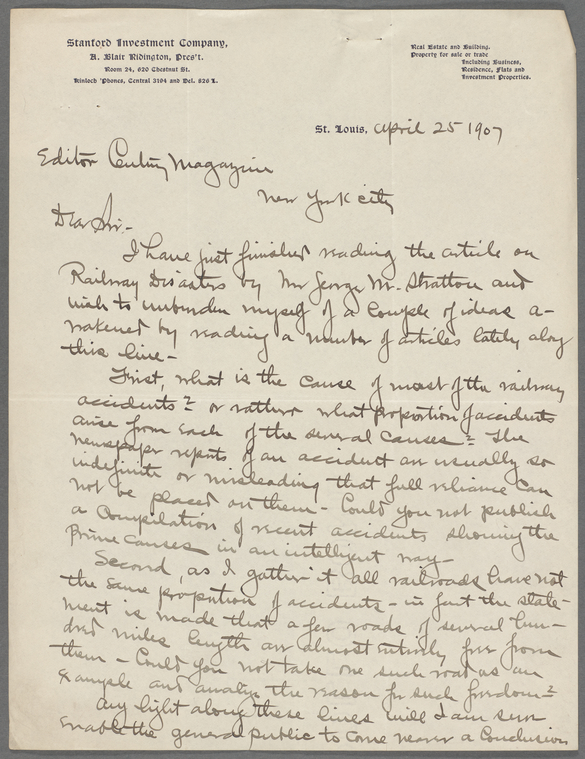 Stanford Investment Company,
A. Blair Ridington, Pres't.
Room 24, 620 Chestnut St.
Kinloch 'Phones, Central 3164 and Del. 826 L.
Real Estate and Building.
Property for sale or trade
Including Business,
Residence, Flats and
Investment Properties.
St. Louis, April 25 1907
Editor Century Magazine
New York city
Dear Sir.-
I have just finished reading the article on
Railway Disasters by Mr George M. Stratton and
wish to unburden myself of a couple of ideas a-
wakened by reading a number of articles lately along
this line-
First, what is the cause of most of the railway
accidents? or rather what proportion of accidents
arise from each of the several causes? The
newspaper reports of an accident are usually so
indefinite or misleading that full reliance can
not be placed on them- Could you not publish
a compilation of recent accidents showing the
prime causes in an intelligent way-
Second, as I gather it all railroads have not
the same proportion of accidents - in fact the state-
ment is made that a few roads of several hun-
dred miles length are almost entirely free from
them - Could you not take one such road as an
example and analyze the reason for such freedom?
Any light along these lines will I am sure
enable the general public to come nearer a conclusion